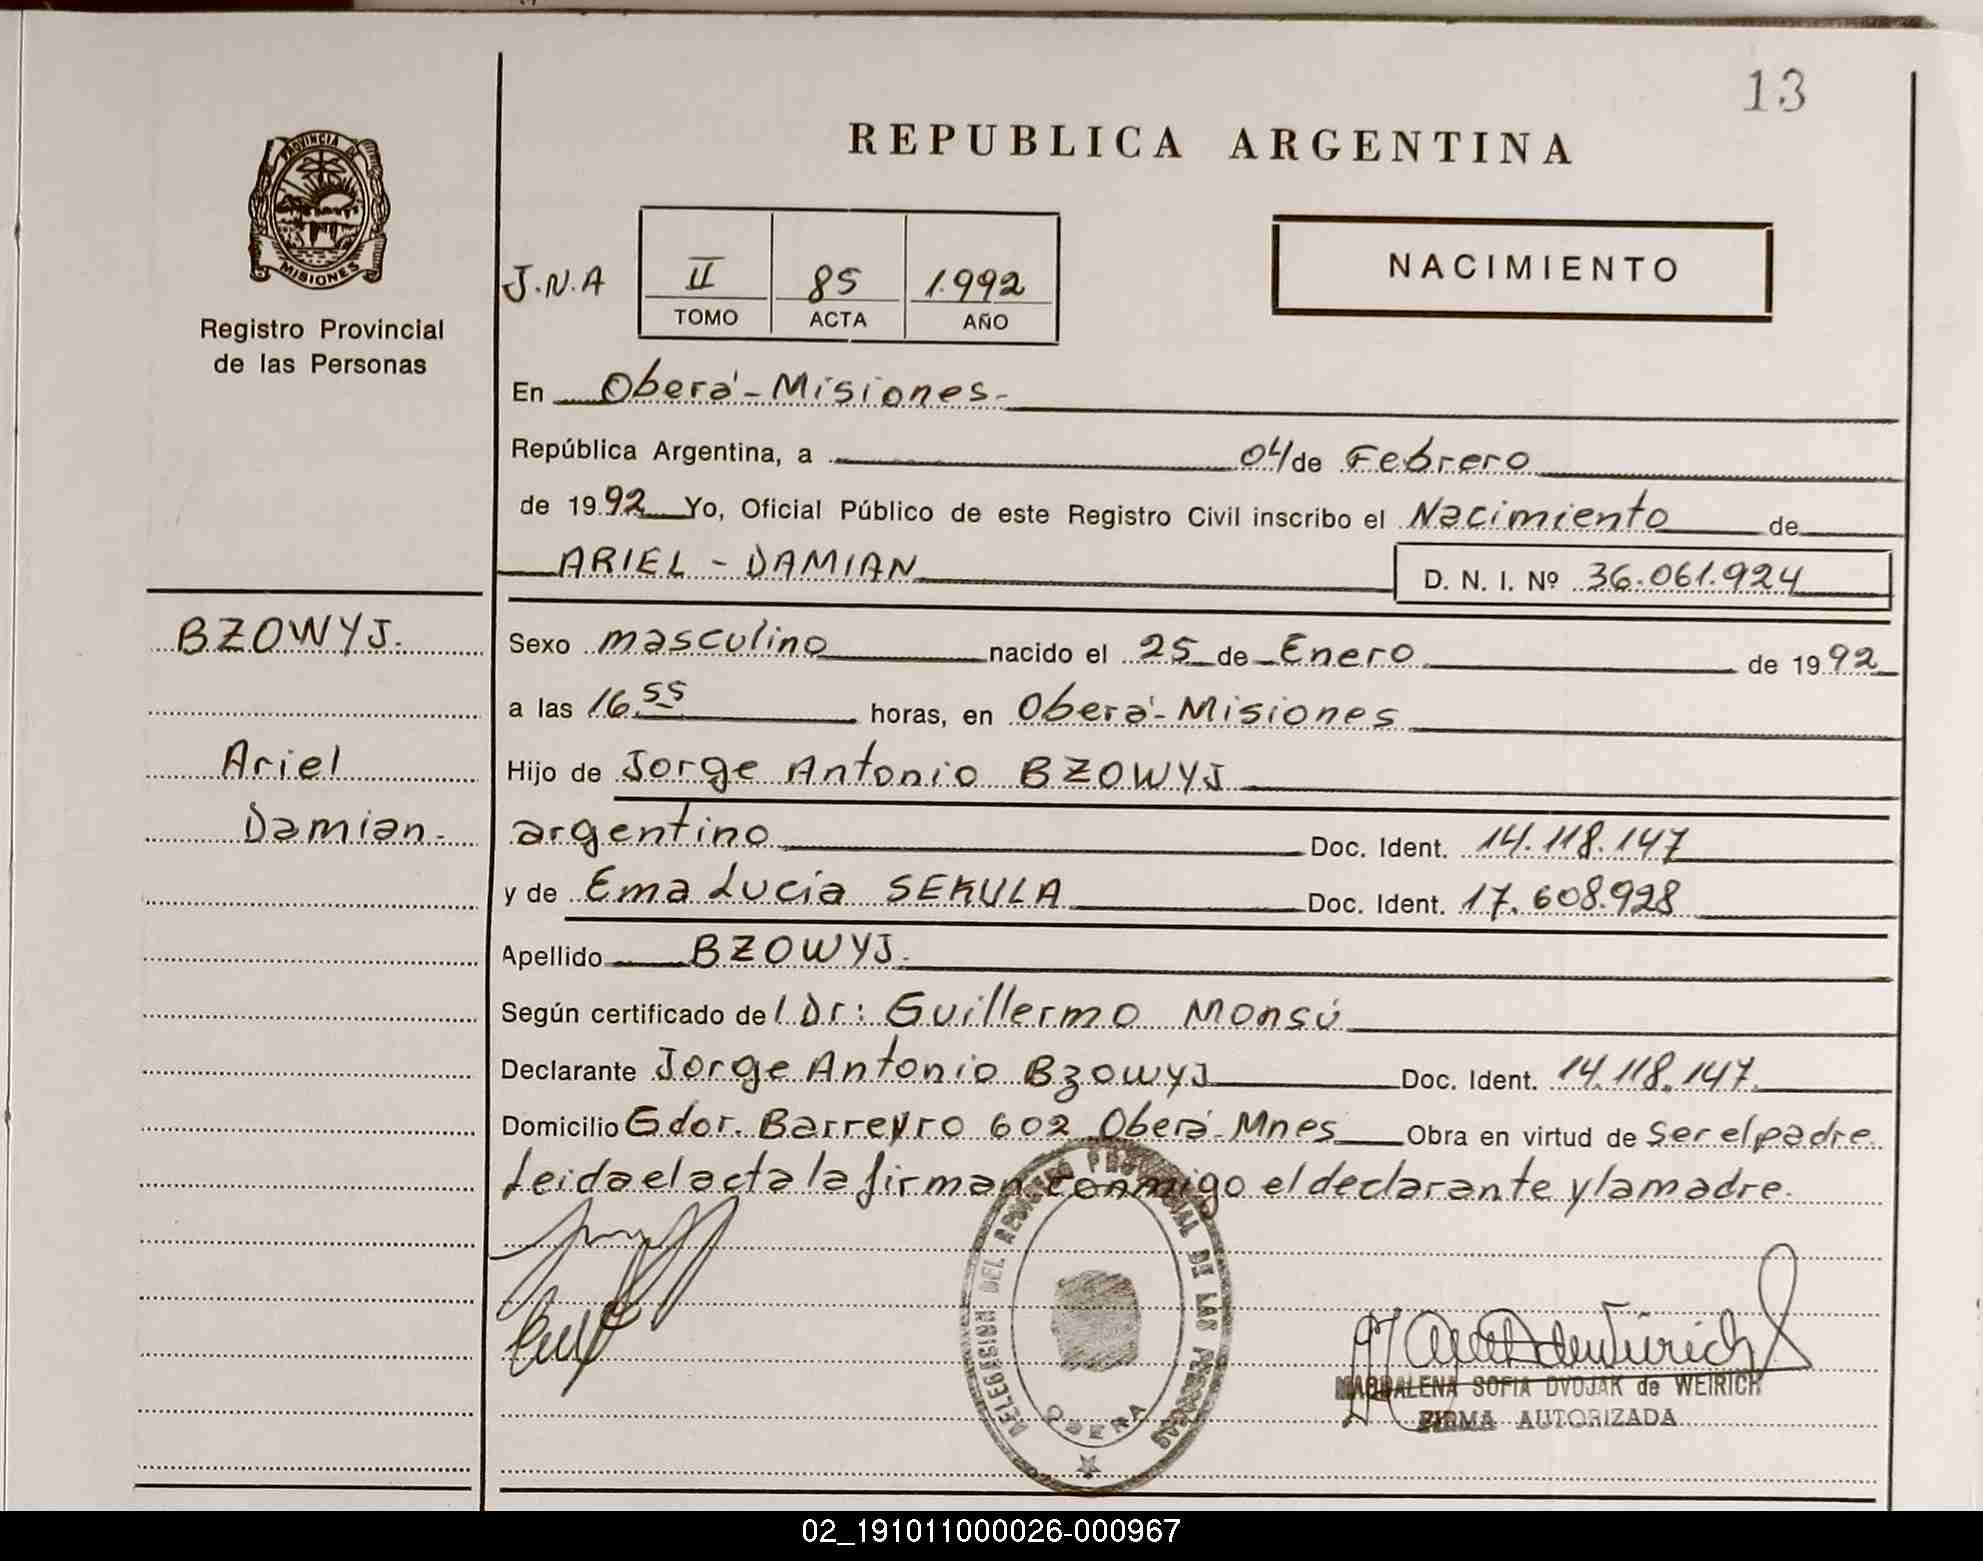 13
REPUBLICA ARGENTINA
PROVINCIA DE
MISIONES
Registro Provincial
de las Personas
J.N.A
II 85 1.992
TOMO ACTA AÑO
NACIMIENTO
En Oberá - Misiones.-
República Argentina, a 04 de Febrero
de 1992 Yo, Oficial Público de este Registro Civil inscribo el Nacimiento de
ARIEL - DAMIAN D. N. I. Nº 36.061.924
BZOWYJ.
Ariel
Damian.-
Sexo masculino nacido el 25 de Enero de 1992
a las 16.55 horas, en Oberá - Misiones
Hijo de Jorge Antonio BZOWYJ
argentino Doc. Ident. 14.118.147
y de Ema Lucia SEKULA Doc. Ident. 17.608.928
Apellido BZOWYJ.
Según certificado del Dr: Guillermo Monsú
Declarante Jorge Antonio Bzowyj Doc. Ident. 14.118.147
Domicilio Gdor. Barreyro 602 Oberá - Mnes Obra en virtud de ser el padre
Leida el acta la firman conmigo el declarante y la madre.
DELEGASION DEL REGISTRO PROVINCIAL DE LAS PERSONAS
OBERA
MAGDALENA SOFIA DVOJAK de WEIRICH
FIRMA AUTORIZADA
02_191011000026-000967